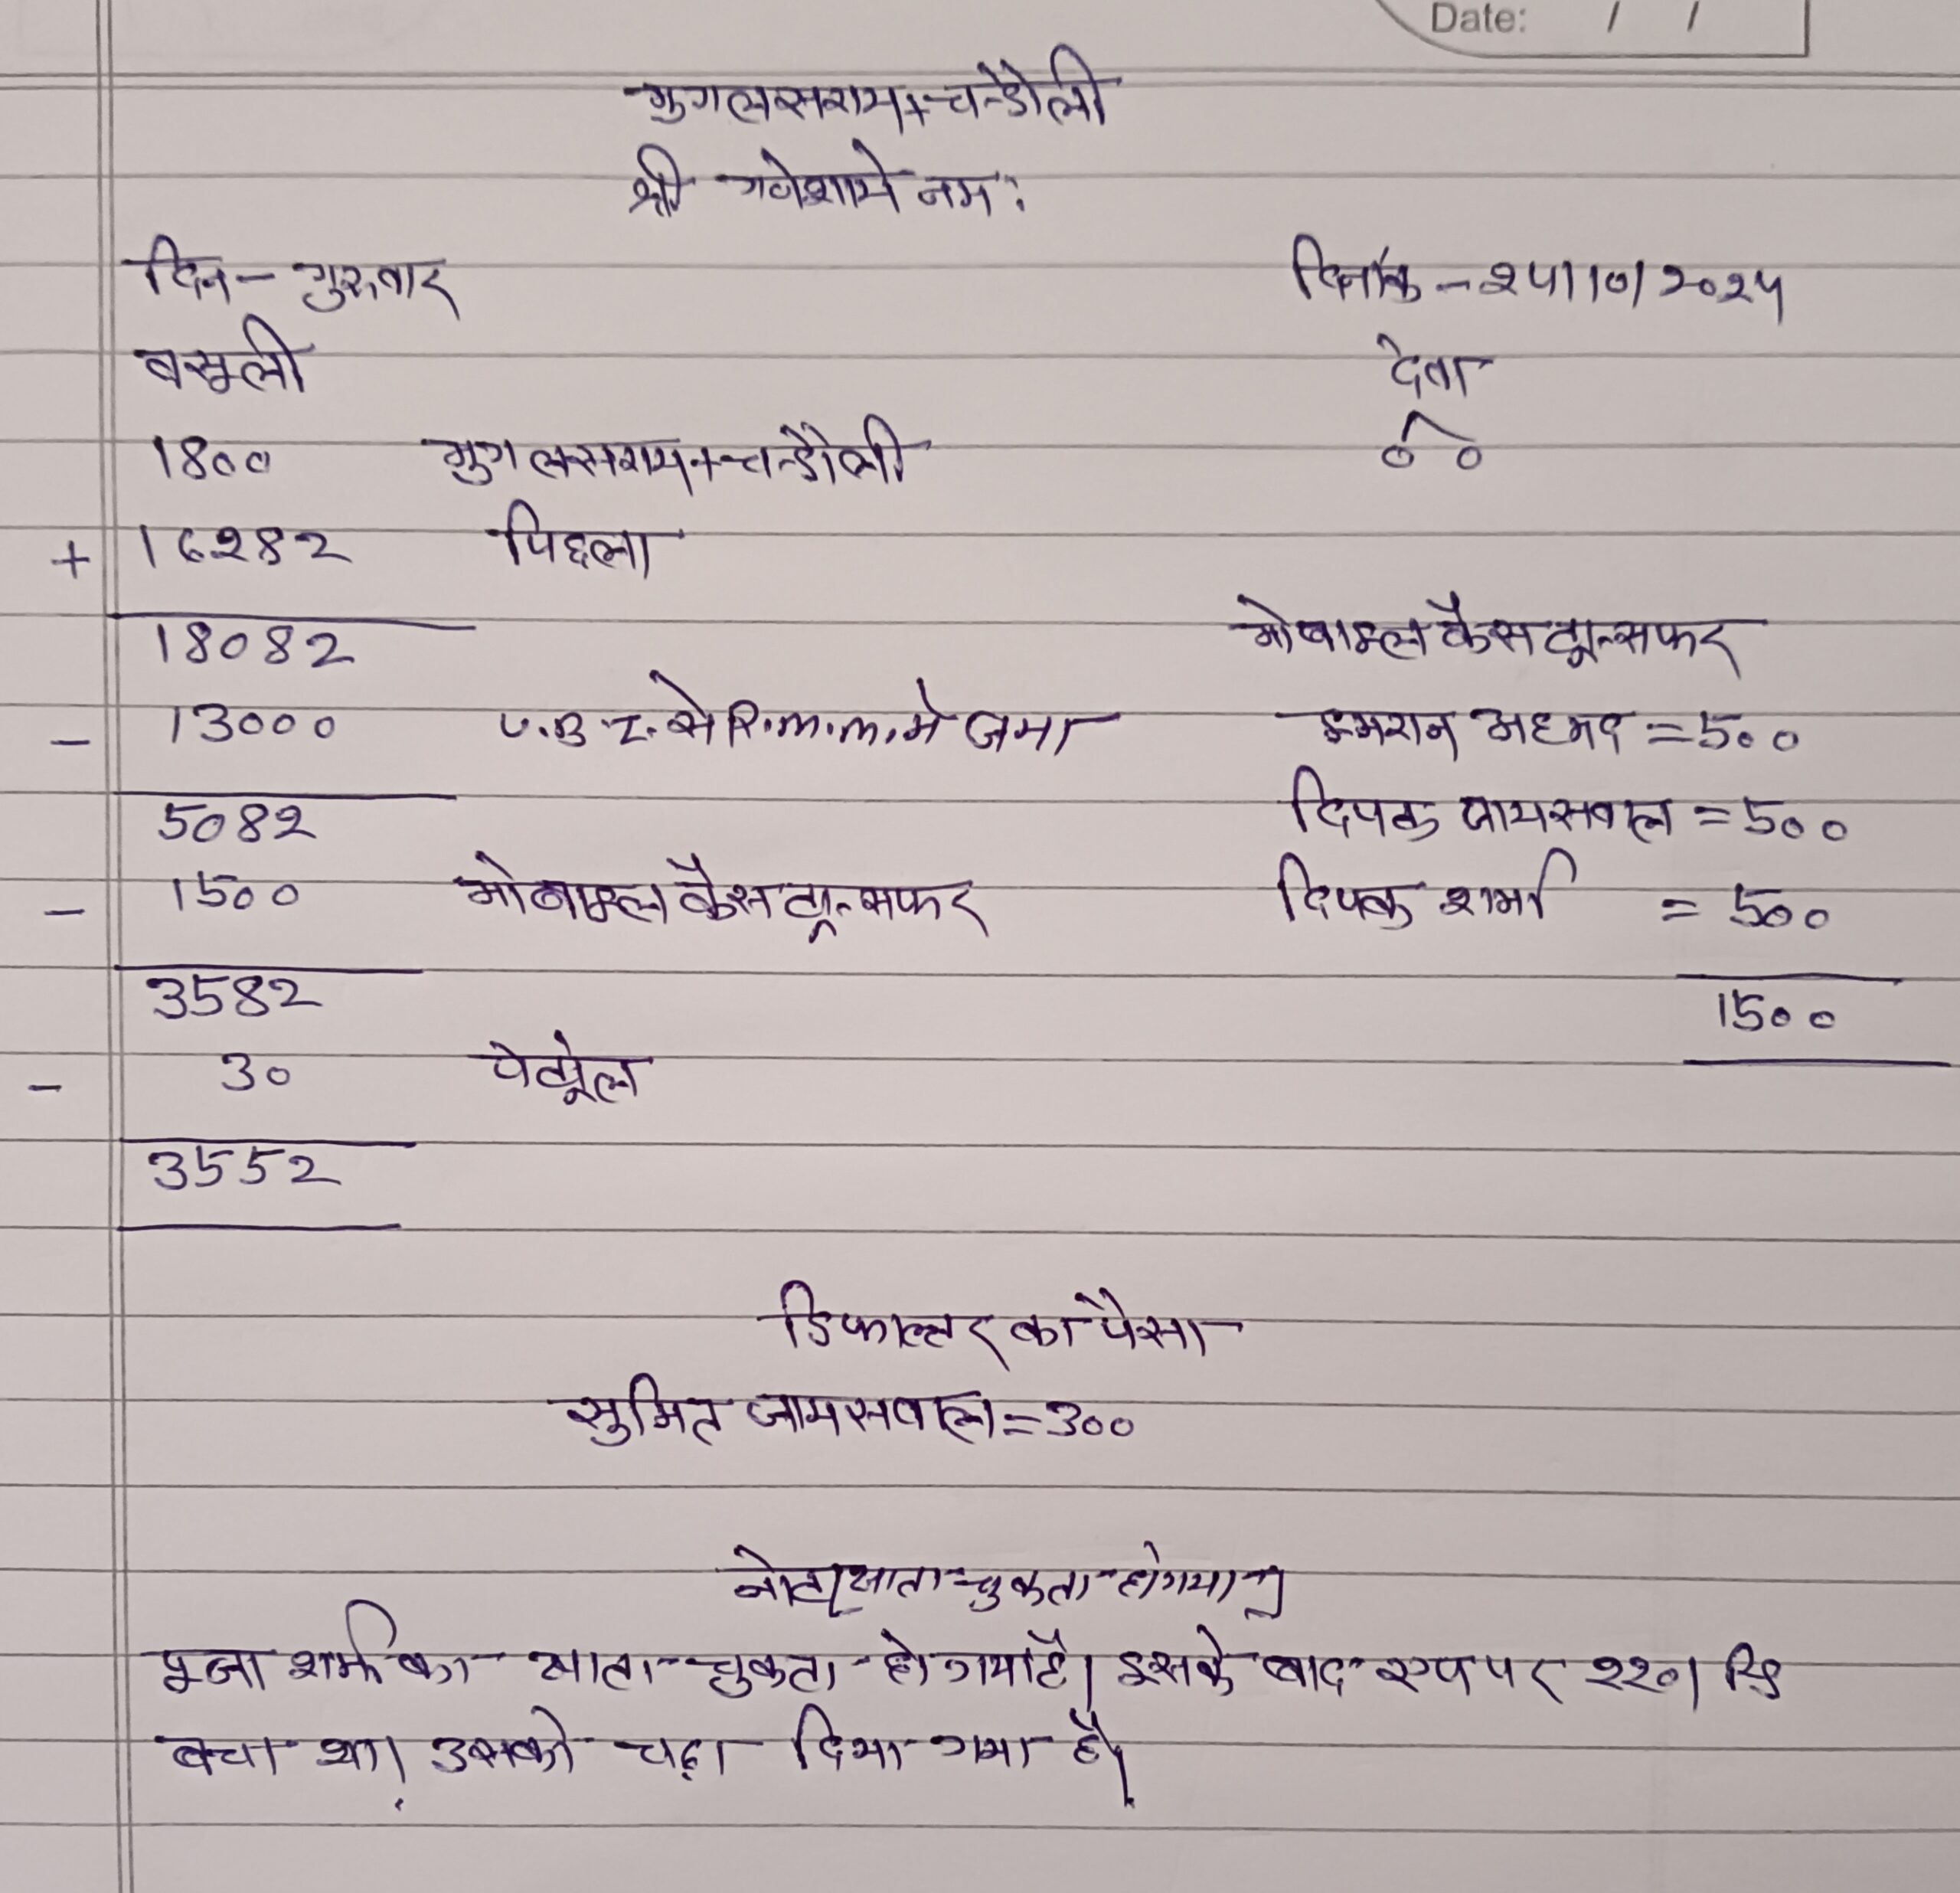 Date: / /
मुगलसराय+चन्दौली
श्री गणेशाये नमः
दिन - गुरुवार दिनांक - २५/10/२०२५
वसूली देना
1800 मुगलसराय+चन्दौली ००
+ 1६२8२ पिछला
180८२
मोबाइल कैस ट्रान्सफर
- 13000 से R.m.m. मे जमा इमरान अहमद = 500
50८२ दिपक जायसवाल = 500
- 1500 मोबाइल कैस ट्रान्सफर दिपक शर्मा = 500
3582 1500
- 30 पेट्रोल
3552
डिफाल्टर का पैसा
सुमित जायसवाल = 300
नोट खाता चुकता हो गया
पूजा शर्मा का खाता चुकता हो गया है। इसके बाद एप पर २२०।
बचा था। उसको चढ़ा दिया गया है।